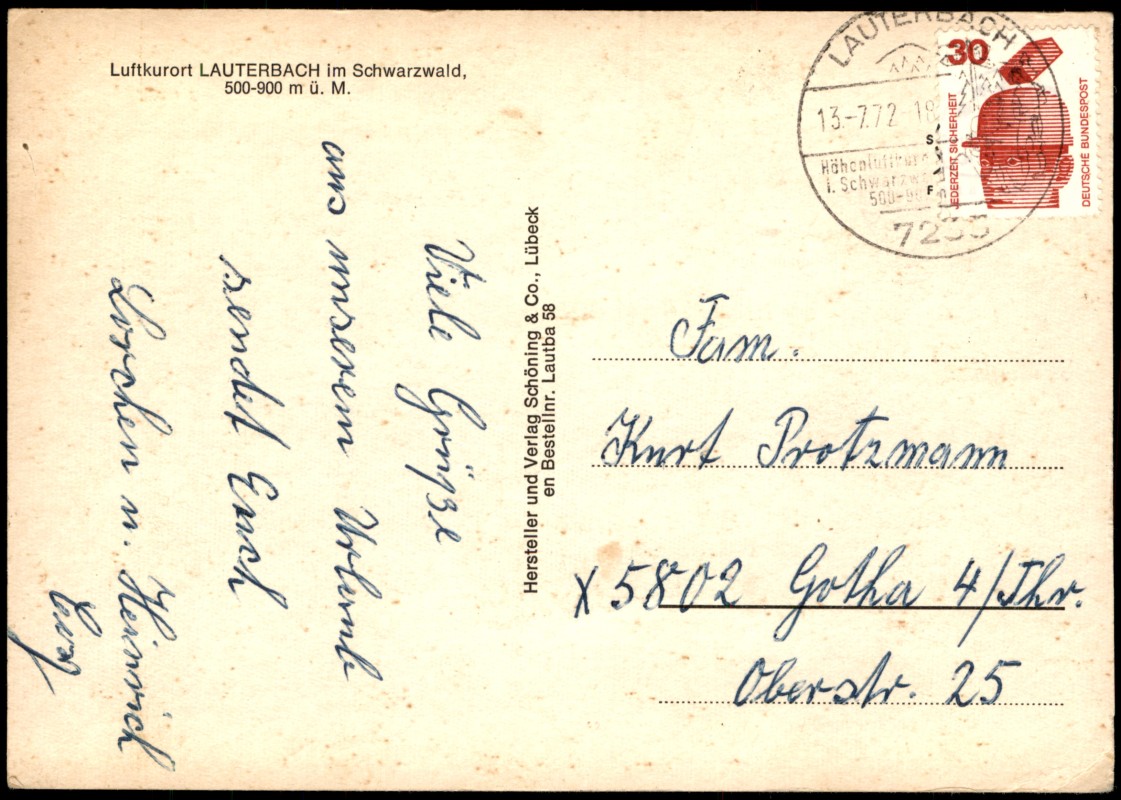 Luftkurort LAUTERBACH im Schwarzwald,
500-900 m ü. M.
Viele Grüsse
aus unserem Urlaub
sendet Euch
Lorchen u. Heinrich
Hersteller und Verlag Schöning & Co., Lübeck
en Bestellnr. Lautba 58
LAUTERBACH
13.-7.72-18
Höhenluftkur
i. Schwarzw
500-90
30
JEDERZEIT SICHERHEIT
DEUTSCHE BUNDESPOST
Fam.
Kurt Protzmann
X 5802 Gotha 4/Thr.
Oberstr. 25